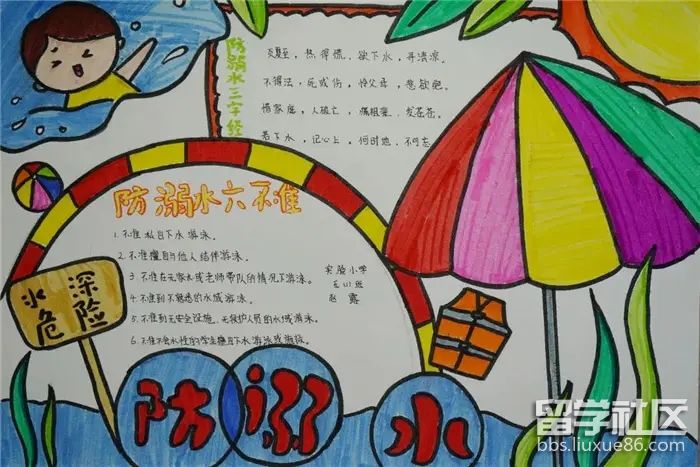 防溺水三字经
夏至，热得慌，欲下水，寻清凉。
不得法，死或伤，怜父母，悲欲绝。
惜家庭，人亡，痛祖辈，发苍苍。
若下水，记心上，何时地，不可忘
防溺水六不准
1. 不准私自下水游泳。
2. 不准擅自与他人结伴游泳。
3. 不准在无家长或老师带队的情况下游泳。
4. 不准到不熟悉的水域游泳。
5. 不准到无安全设施、无救护人员的水域游泳。
6. 不准不会水性的学生擅自下水游泳或施救。
实验小学
班
赵露
水深
危险
防溺水
留学社区
bbs.liuxue86.com